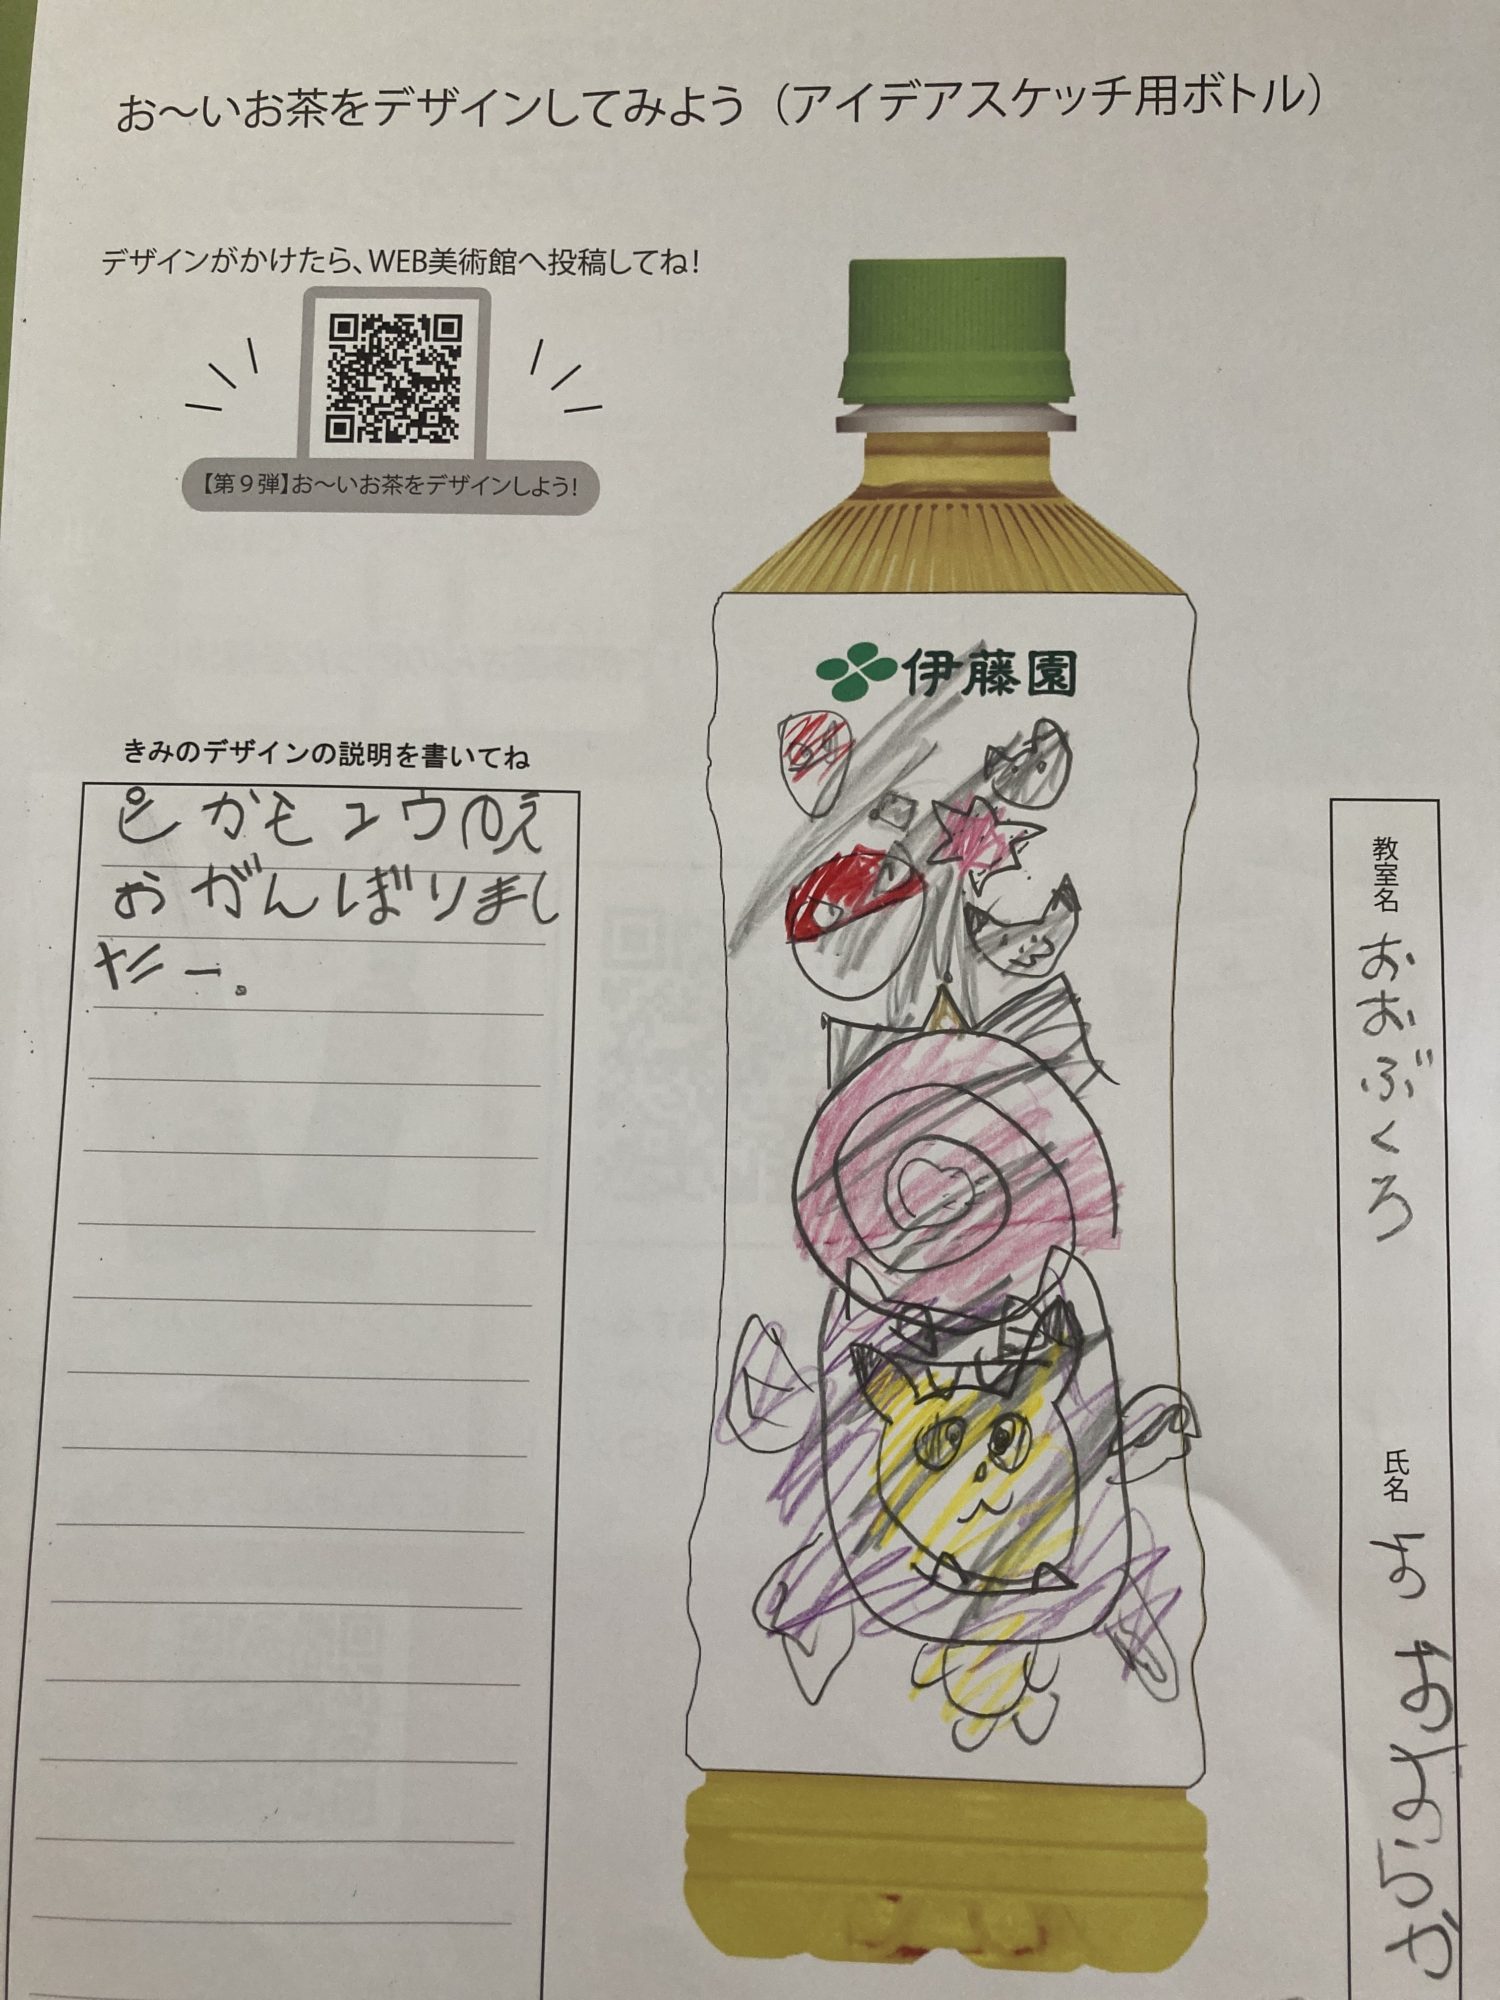 お〜いお茶をデザインしてみよう（アイデアスケッチ用ボトル）
デザインがかけたら、WEB美術館へ投稿してね！
【第９弾】お〜いお茶をデザインしよう！
伊藤園
きみのデザインの説明を書いてね
ピカモュウのえ
おがんばりまし
だー。
教室名
おおぶくろ
氏名